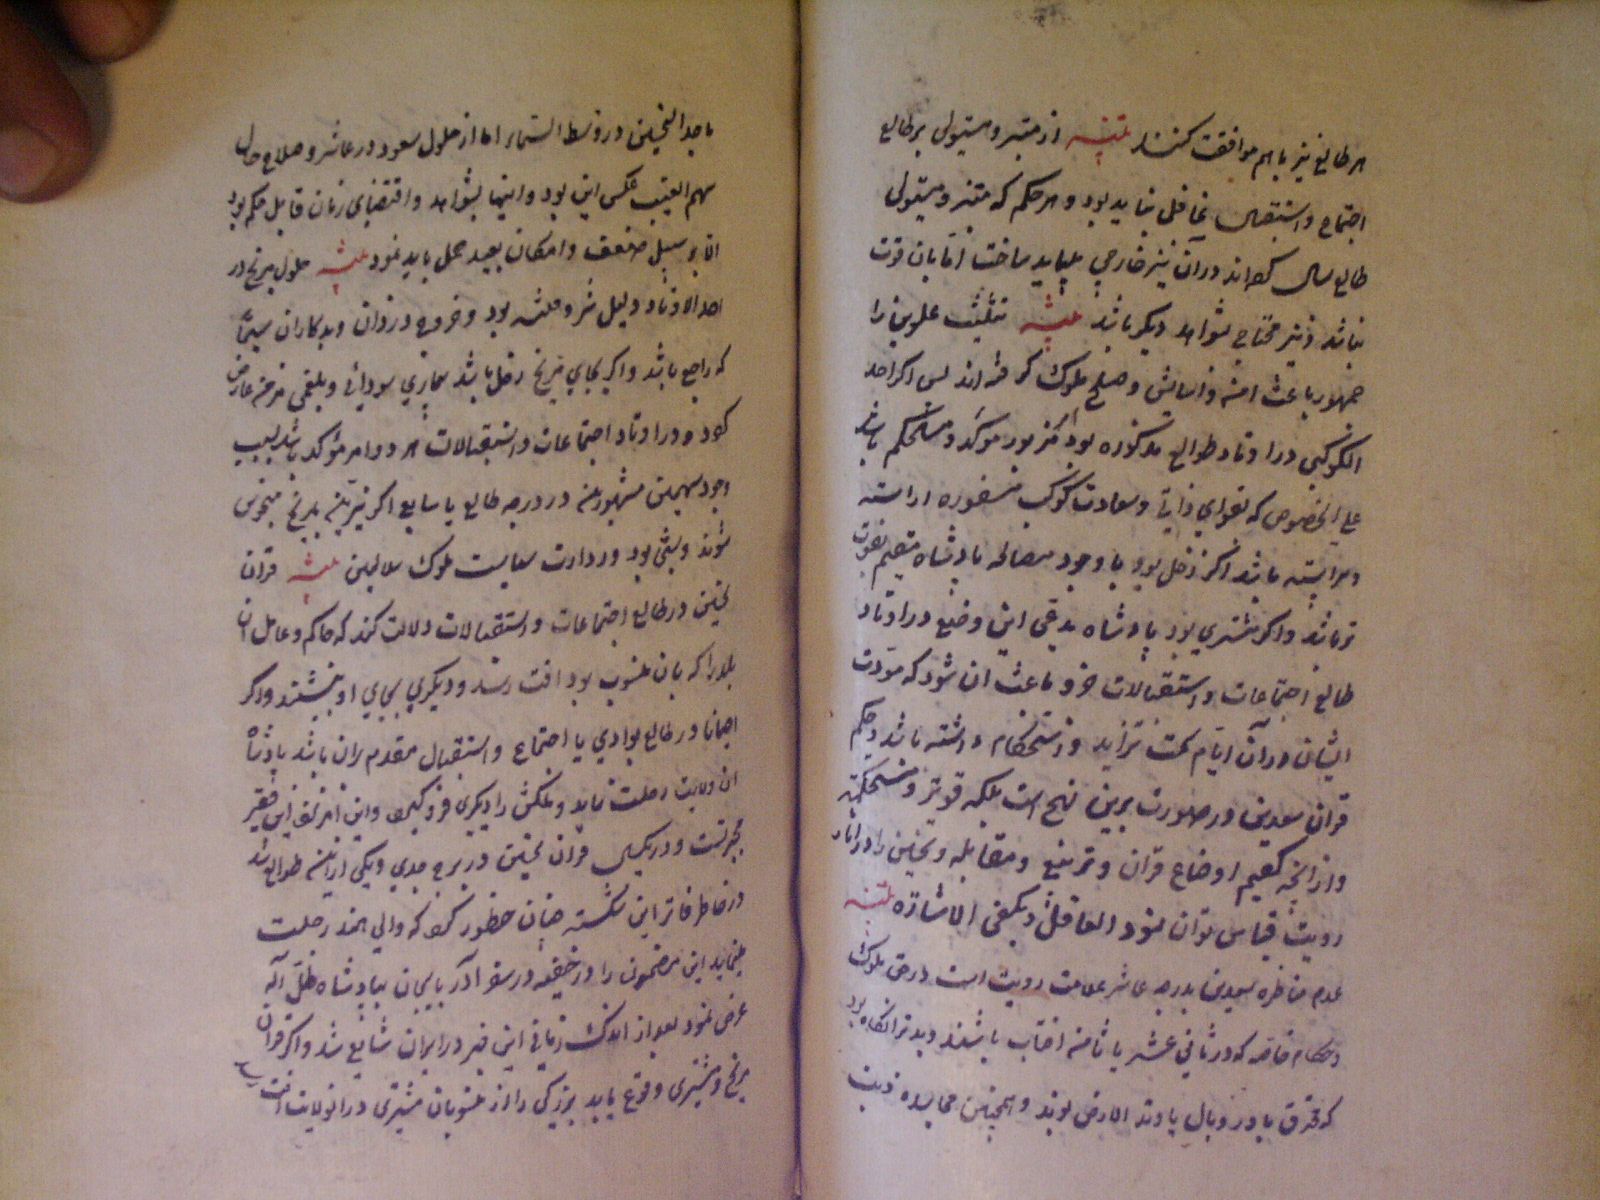 هر طالع نیز با هم موافقت کنند تنبیه از مبتز و مستولی بر طالع
اجتماع و استقبال غافل نباید بود و هر حکم که مبتز و مستولی
طالع سال کرده اند در آن نیز خارجی باید ساخت اما بآن قوت
نباشد و نیز محتاج شواهد دیگر باشد تنبیه تثلیث علویین را
جمهور باعث امنیه و آسایش و صلح ملوک گرفته اند پس اگر احد
الکوکبین در اوتاد طوالع مذکوره بود امر مزبور موکد و مستحکم باشد
علی الخصوص که بقوای ذاتی و سعادت کوکب مسفوره اراسته
و پیراسته باشد اگر زحل بود با وجود مصالحه پادشاه متهم بقوت
تر باشد و اگر مشتری بود پادشاه مدعی این وضع در اوتاد
طالع اجتماعات و استقبالات جزو باعث ان شود که مودت
ایشان در آن ایام سمت تزاید و استحکام داشته باشد و حکم
قران سعدین در صورت برین نهج است بلکه قویتر و مستحکمتر
و از آنچه گفتیم اوضاع قران و تربیع و مقابله و نحسین را در اوتاد
رویت قیاس توان نمود العاقل یکفی الاشاره تنبیه
عدم مناظره سعدین بدرجه عاشر علامت رویت است در حق ملوک
و حکام خاصه که در ثانی عشر یا ثامنه آفتاب باشند و بدتر آنگاه بود
که محترق یا در وبال یا وتد الارض بوند و همچنین
ماجد النحسین در وسط السماء اما از حلول سعود در عاشر و صلاح حال
سهم الغیب عکس این بود و اینها بشواهد و اقتضای زمان قابل حکم بود
الا بر سبیل ضعف و امکان بعید حمل باید نمود تنبیه حلول مریخ در
احد الاوتاد دلیل شر و فتنه بود و خروج دزدان و بدکاران سیما
که راجع باشد و اگر بجای مریخ زحل باشد بیماری سودائی و بلغمی مزمنه عارض
گردد و در اوتاد اجتماعات و استقبالات هر دو امر موکد باشد بسبب
وجود سهمین مشهورین در درجه طالع یا سابع اگر نیرین بمریخ منحوس
شوند وبشی بود در وارت سعایت ملوک سلاطین تنبیه قران
نحسین در طالع اجتماعات و استقبالات دلالت کند که حاکم و عامل ان
بلد را که بان منسوب بود آفت رسد و دیگری بجای او بنشیند و اگر
احیانا در طالع بوادی یا اجتماع و استقبال مقدم بران باشد پادشاه
ان ولایت رحلت نماید و ملکش را دیگری فرو گیرد و این امر نزد این فقیر
مجربست و در یکسال قران نحسین در برج جدی و یکی ازینه طوالع شد
در خاطر فاتر این شکسته چنان خطور کرد که والی هند رحلت
مینماید این مضمون را در خفیه در سفر آذربایجان بپادشاه ظل اله
عرض نمود بعد از اندک زمانی این خبر در ایران شایع شد و اگر قران
مریخ و مشتری وقوع یابد بزرگی را از منسوبان مشتری در آن ولایت آفت رسد